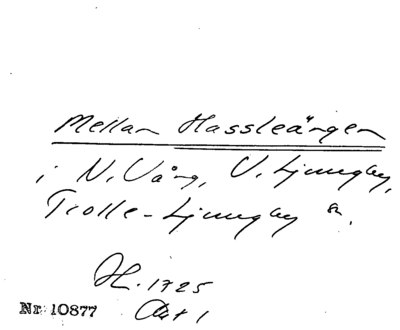 Mellan Hassleängen
i N. Vång, V. Ljungby,
Trolle-Ljungby sn.
H. 1725
Akt 1
Nr 10877